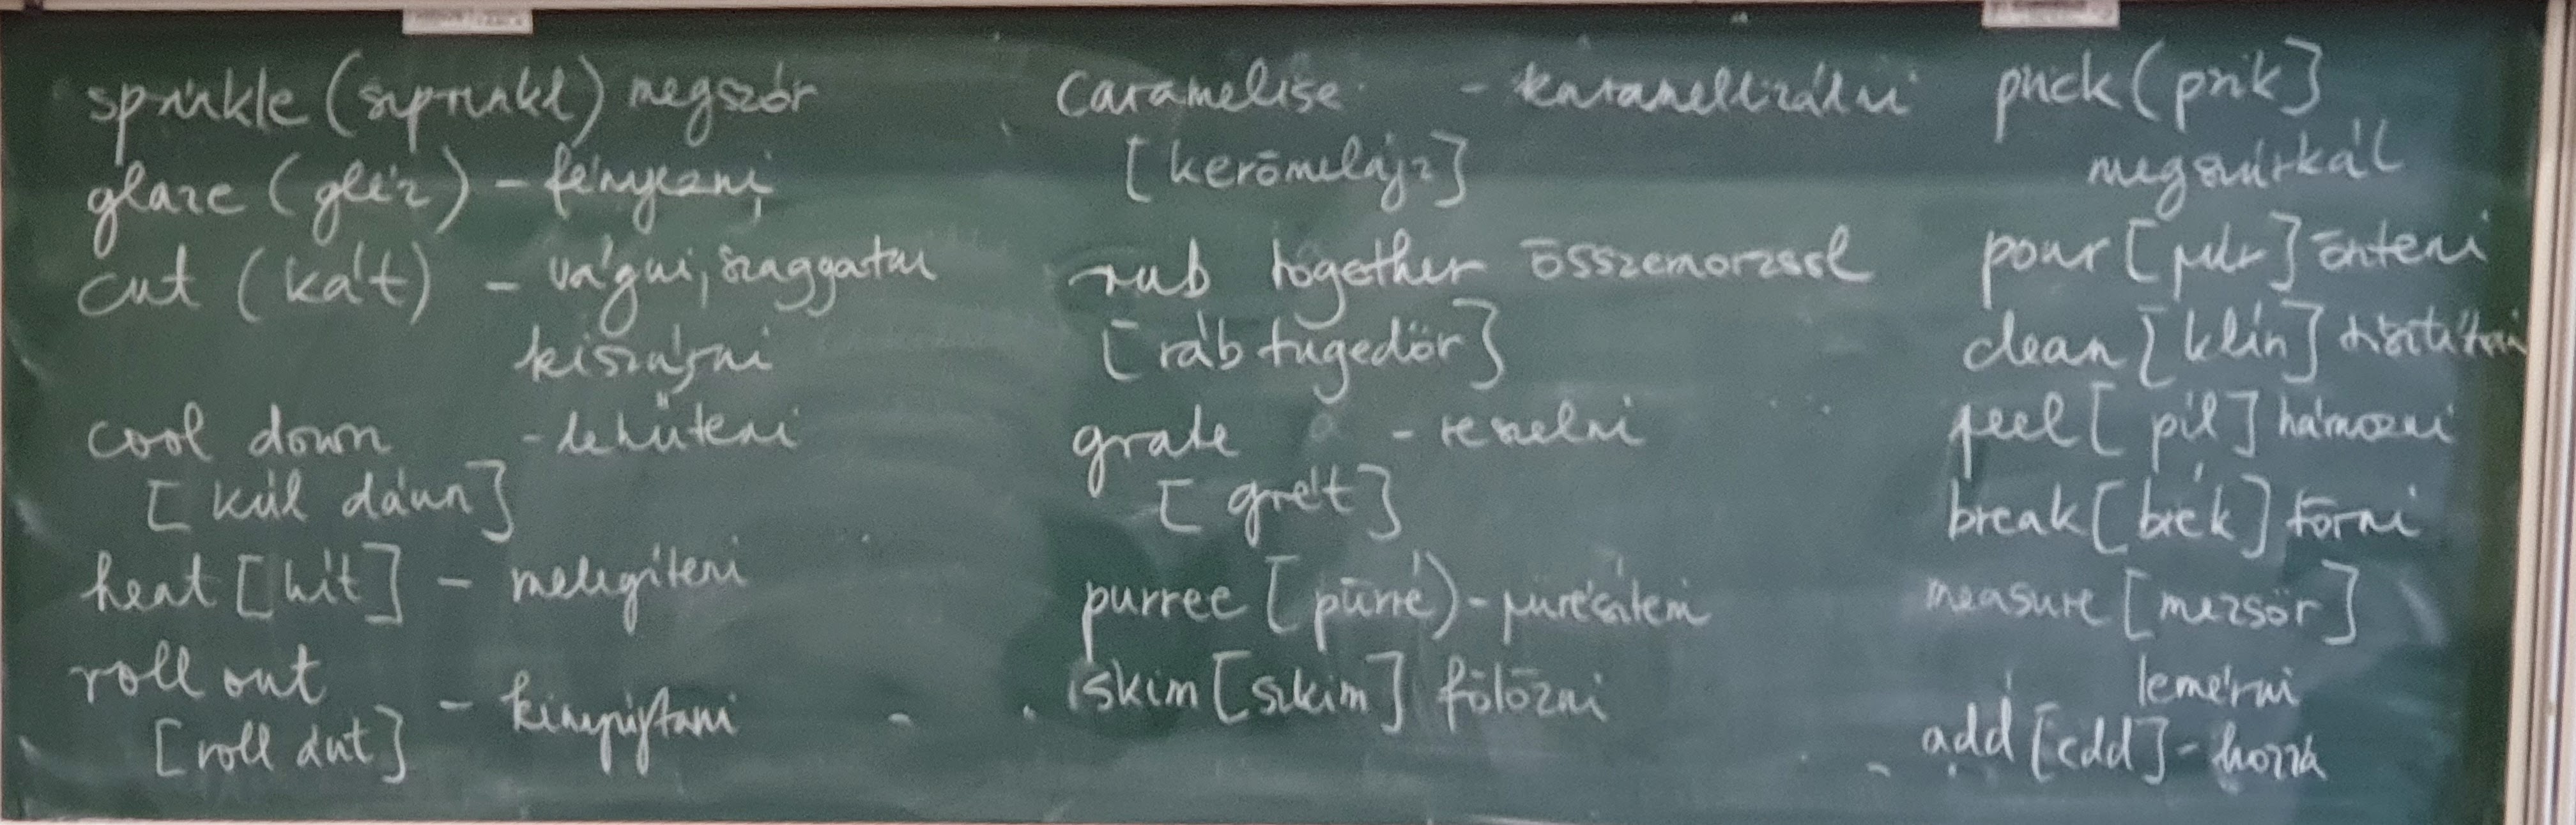 sprinkle (szprinkl) megszór
glaze (gléz) - fényezni
cut (kát) - vágni, szaggatni
kiszúrni
cool down - lehűteni
[kúl dáun]
heat [hít] - melegíteni
roll out
[roll áut] - kinyújtani
caramelise - karamellizálni
[kerömelájz]
rub together összemorzsol
[ráb tugedör]
grate - reszelni
[grét]
purree [püré) - pürésíteni
skim [szkim] fölözni
prick (prik]
megszurkál
pour [púr] önteni
clean [klín] tisztítani
peel [píl] hámozni
break [brék] törni
measure [mezsör]
lemérni
add [edd] - hozzá